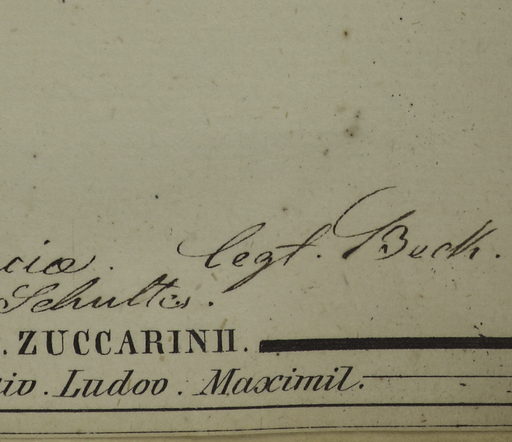 ciæ. legt. Beck.
Schultes.
. ZUCCARINII.
io. Ludov. Maximil.